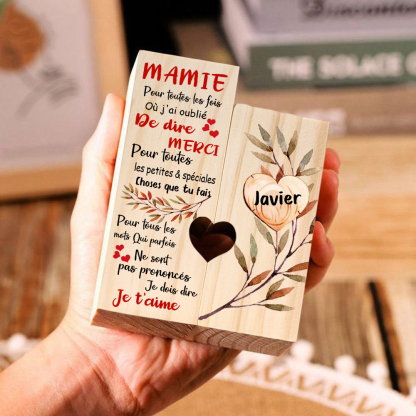 MAMIE
Pour toutes les fois
Où j'ai oublié
De dire
MERCI
Pour toutes
les petites & spéciales
Choses que tu fais
Pour tous les
mots Qui parfois
Ne sont
pas prononcés
Je dois dire
Je t'aime
Javier
THE SOLACE O